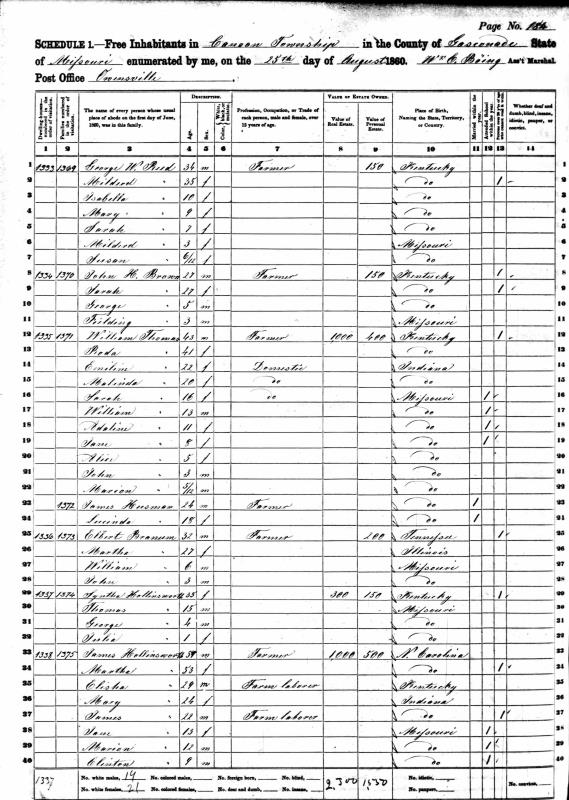 Page No. 154
SCHEDULE 1.—Free Inhabitants in Canaan Township in the County of Gasconade State
of Missouri enumerated by me, on the 25th day of August 1860. Wm C. Böing Ass't Marshal.
Post Office Owensville
DESCRIPTION. VALUE OF ESTATE OWNED.
The name of every person whose usual place of abode on the first day of June, 1860, was in this family. Age. Sex. Profession, Occupation, or Trade of each person, male and female, over 15 years of age. Value of Real Estate. Value of Personal Estate. Place of Birth, Naming the State, Territory, or Country. Married within the year. Attended School within the year. Whether deaf and dumb, blind, insane, idiotic, pauper, or convict.
1 2 3 4 5 6 7 8 9 10 11 12 13 14
1 1333 1369 George W. Reed 34 m Farmer 150 Kentucky 1
2 Milderd " 35 f do 1 2
3 Isabella " 10 f do 3
4 Mary " 9 f do 4
5 Sarah " 7 f do 5
6 Milderd " 3 f Missouri 6
7 Susan " 6/12 f do 7
8 1334 1370 John H. Brown 27 m Farmer 150 Kentucky 1 8
9 Sarah " 27 f do 1 9
10 George " 5 m do 10
11 Fielding " 3 m Missouri 11
12 1335 1371 William Thomas 43 m Farmer 1000 400 Kentucky 1 12
13 Roda " 41 f do 13
14 Emiline " 22 f Domestic Indiana 14
15 Malinda " 20 f do do 15
16 Sarah " 16 f do Missouri 1 16
17 William " 13 m do 1 17
18 Adaline " 11 f do 1 18
19 Jane " 8 f do 1 19
20 Alice " 5 f do 20
21 John " 3 m do 21
22 Marion " 5/12 m do 22
23 1372 James Heusman 24 m Farmer do 1 23
24 Lucinda " 18 f do 1 24
25 1336 1373 Elbert Branum 32 m Farmer 200 Tennessee 1 25
26 Martha " 27 f Illinois 26
27 William " 6 m Missouri 27
28 John " 3 m do 28
29 1337 1374 Syntha Hollinsworth 35 f 300 150 Kentucky 1 29
30 Thomas " 15 m Missouri 30
31 George " 4 m do 31
32 Julia " 1 f do 32
33 1338 1375 James Hollinsworth 59 m Farmer 1,000 500 N. Carolina 33
34 Martha " 53 f do 1 34
35 Elisha " 29 m Farm laborer Kentucky 35
36 Mary " 24 f Indiana 36
37 James " 22 m Farm laborer do 1 37
38 Jane " 13 f Missouri 1 38
39 Marion " 12 m do 1 39
40 Clinton " 9 m do 1 40
1337 No. white males, 19 No. colored males, No. foreign born, No. blind, 2,300 1550 No. idiotic, No. convicts,
No. white females, 21 No. colored females, No. deaf and dumb, No. insane, No. paupers,